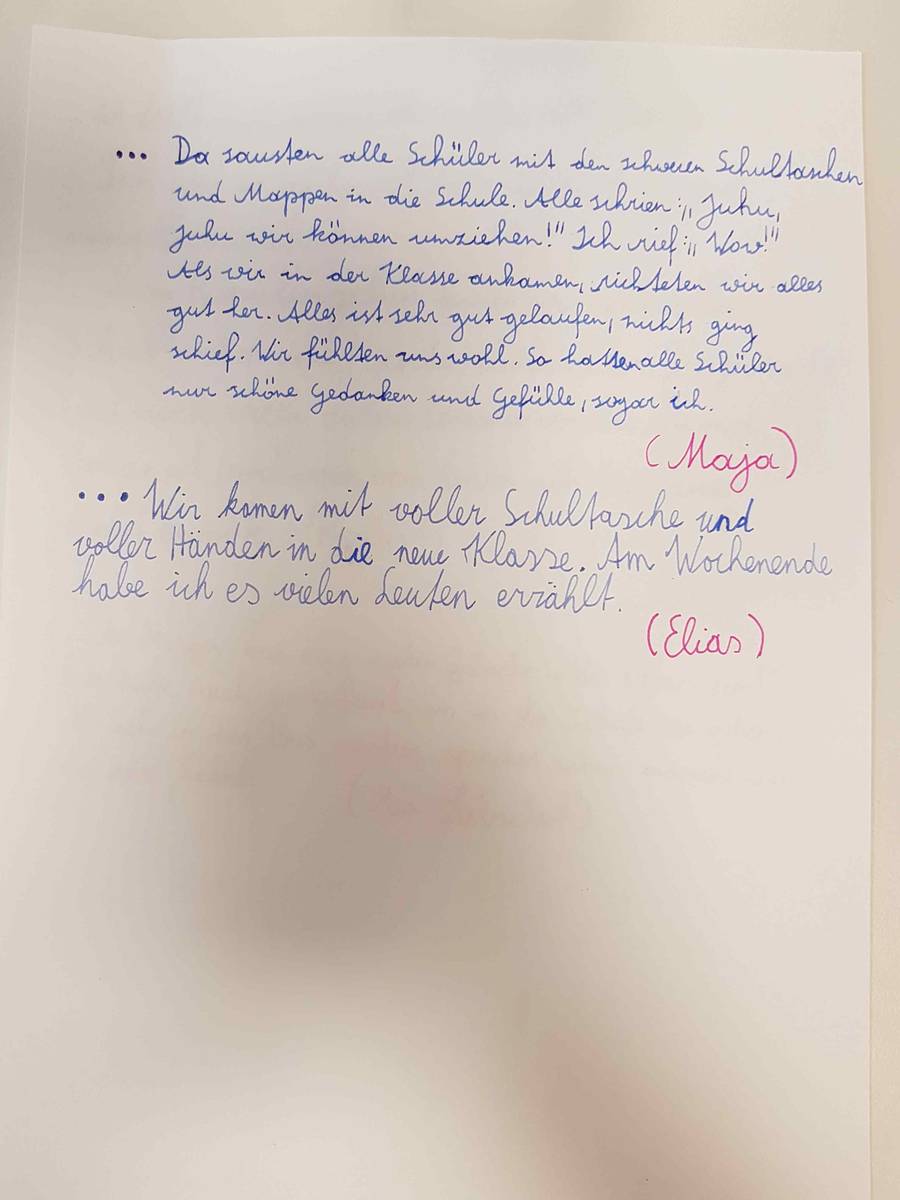 ... Da sausten alle Schüler mit den schweren Schultaschen
und Mappen in die Schule. Alle schrien: „Juhu,
juhu wir können umziehen!" Ich rief: „Wow!"
Als wir in der Klasse ankamen, richteten wir alles
gut her. Alles ist sehr gut gelaufen, nichts ging
schief. Wir fühlten uns wohl. So hatten alle Schüler
nur schöne Gedanken und Gefühle, sogar ich.
(Maja)
... Wir kamen mit voller Schultasche und
voller Händen in die neue Klasse. Am Wochenende
habe ich es vielen Leuten erzählt.
(Elias)